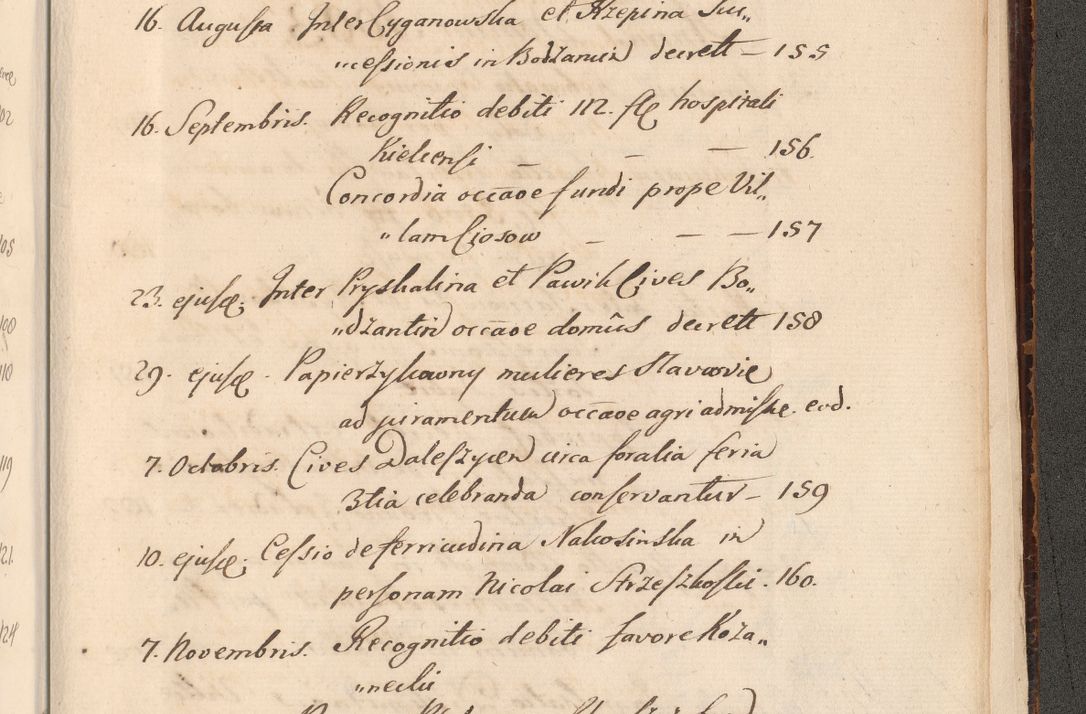 16. Augusta Inter Cyganowska et Krzepina Suc„
„cessionis in Bodzancin decrett — 155
16. Septembris. Recognitio debiti 112. fl hospitali
Kielcensi — — — 156.
Concordia occãoe fundi prope Vil„
„lam Ciosow — — — 157
23. ejusd: Inter Pryskalina et Pawik Cives Bo„
„dzantin occãoe domûs decrett 158
29. ejusd. Papierzykowny mulieres Stavovie
ad juramentum occãoe agri admissæ. eod.
7. Octobris. Cives Daleszycen circa foralia feria
3tia celebranda conservantur — 159
10. ejusd: Cessio de ferricudina Nakosinska in
personam Nicolai Strzeszkoski. 160.
7. Novembris. Recognitio debiti favore Koza„
„necki
102
105
110
119
121.
124